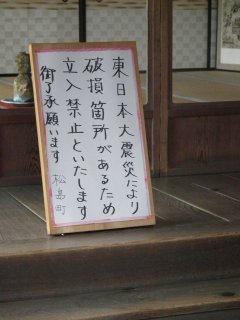 東日本大震災により
破損箇所があるため
立入禁止といたします
御了承願います
松島町